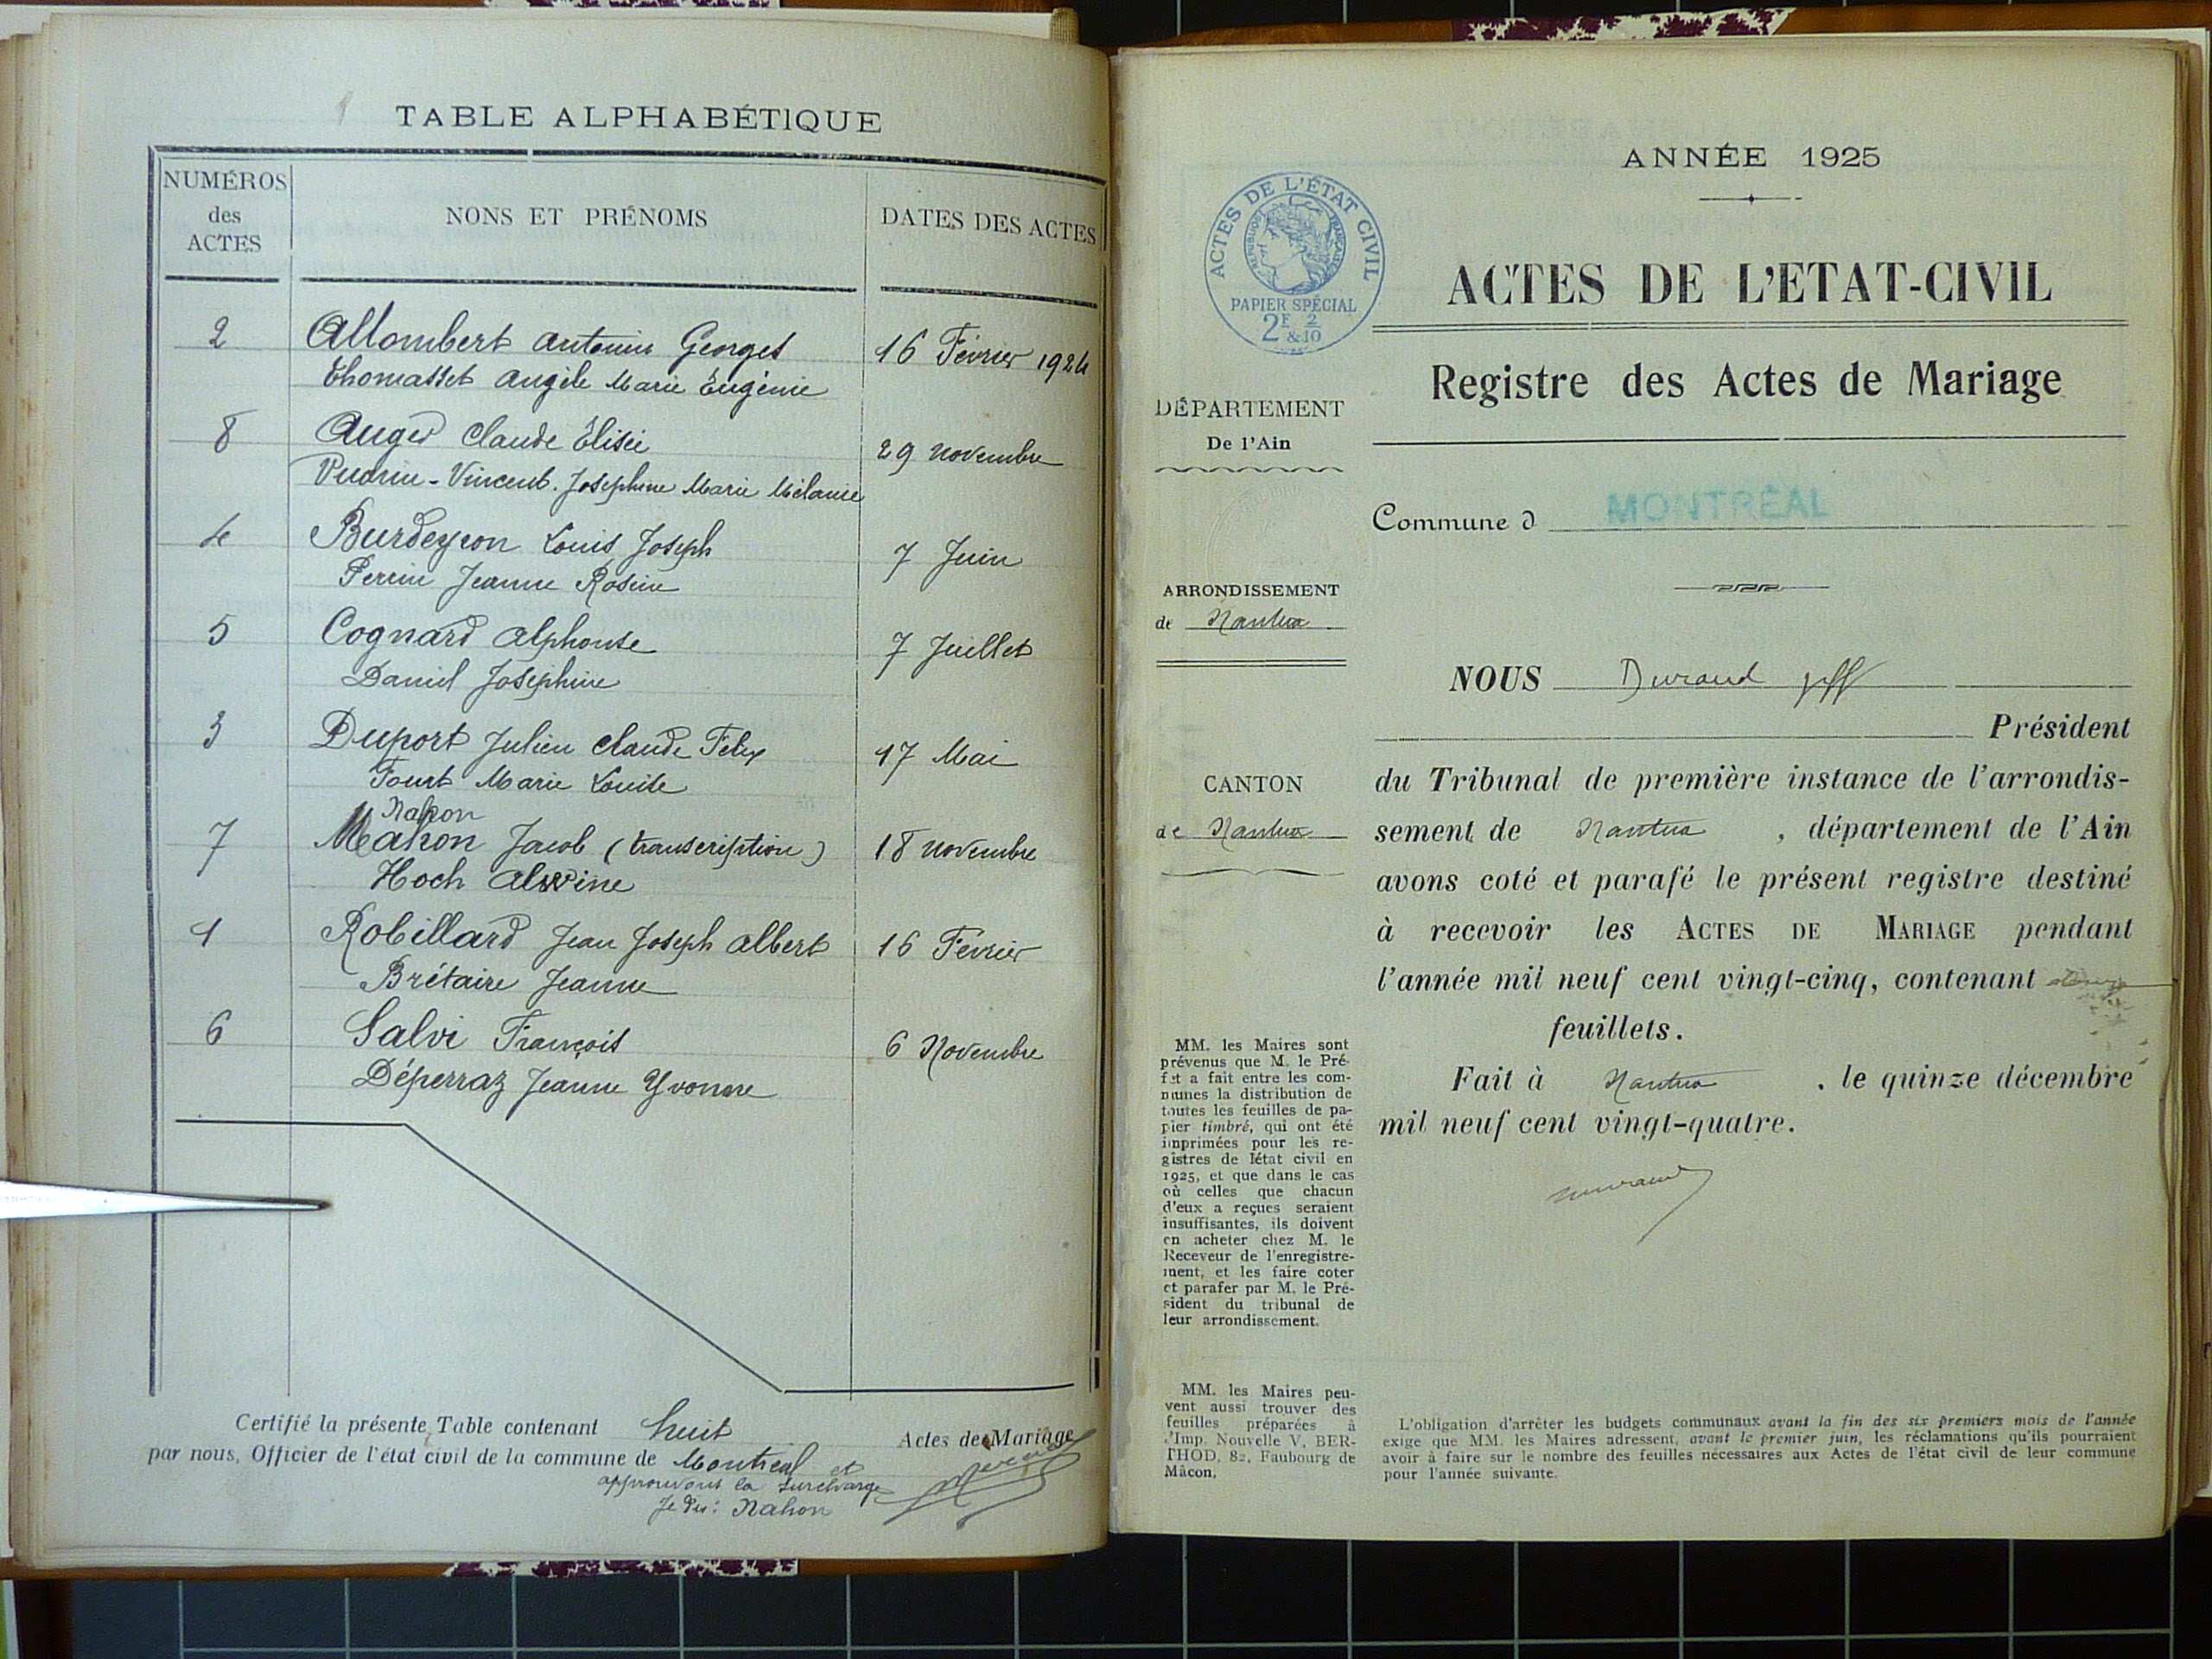 TABLE ALPHABÉTIQUE
NUMÉROS
des
ACTES
NONS ET PRÉNOMS
DATES DES ACTES
2 Allombert Antonin Georges 16 Février 1924
Thomasset Angèle Marie Eugénie
8 Auger Claude Élisée 29 novembre
Vincent. Joséphine Marie Mélanie
4 Burdeyron Louis Joseph 7 Juin
Perrin Jeanne Rosine
5 Cognard Alphonse 7 Juillet
Daniel Joséphine
3 Duport Julien Claude Félix 17 Mai
Marie Louise
Nahon
7 Mahon Jacob (transcription) 18 novembre
Hoch Alwine
1 Robillard Jean Joseph Albert 16 Février
Brétaire Jeanne
6 Salvi François 6 Novembre
Déperraz Jeanne Yvonne
Certifié la présente Table contenant huit Actes de Mariage
par nous, Officier de l'état civil de la commune de Montréal et
approuvons la surcharge
Je dis : Nahon
ANNÉE 1925
ACTES DE L'ÉTAT CIVIL
RÉPUBLIQUE FRANÇAISE
PAPIER SPÉCIAL
2F & 2/10
ACTES DE L'ETAT-CIVIL
Registre des Actes de Mariage
DÉPARTEMENT
De l'Ain
Commune d MONTRÉAL
ARRONDISSEMENT
de Nantua
NOUS Durand
Président
CANTON
de Nantua
du Tribunal de première instance de l'arrondis-
sement de Nantua, département de l'Ain
avons coté et parafé le présent registre destiné
à recevoir les ACTES DE MARIAGE pendant
l'année mil neuf cent vingt-cinq, contenant
feuillets.
Fait à Nantua, le quinze décembre
mil neuf cent vingt-quatre.
MM. les Maires sont
prévenus que M. le Pré-
fet a fait entre les com-
munes la distribution de
toutes les feuilles de pa-
pier timbré, qui ont été
imprimées pour les re-
gistres de létat civil en
1925, et que dans le cas
où celles que chacun
d'eux a reçues seraient
insuffisantes, ils doivent
en acheter chez M. le
Receveur de l'enregistre-
ment, et les faire coter
et parafer par M. le Pré-
sident du tribunal de
leur arrondissement.
MM. les Maires peu-
vent aussi trouver des
feuilles préparées à
l'Imp. Nouvelle V, BER-
THOD, 82, Faubourg de
Mâcon,
L'obligation d'arrêter les budgets communaux avant la fin des six premiers mois de l'année
exige que MM. les Maires adressent, avant le premier juin, les réclamations qu'ils pourraient
avoir à faire sur le nombre des feuilles nécessaires aux Actes de l'état civil de leur commune
pour l'année suivante.